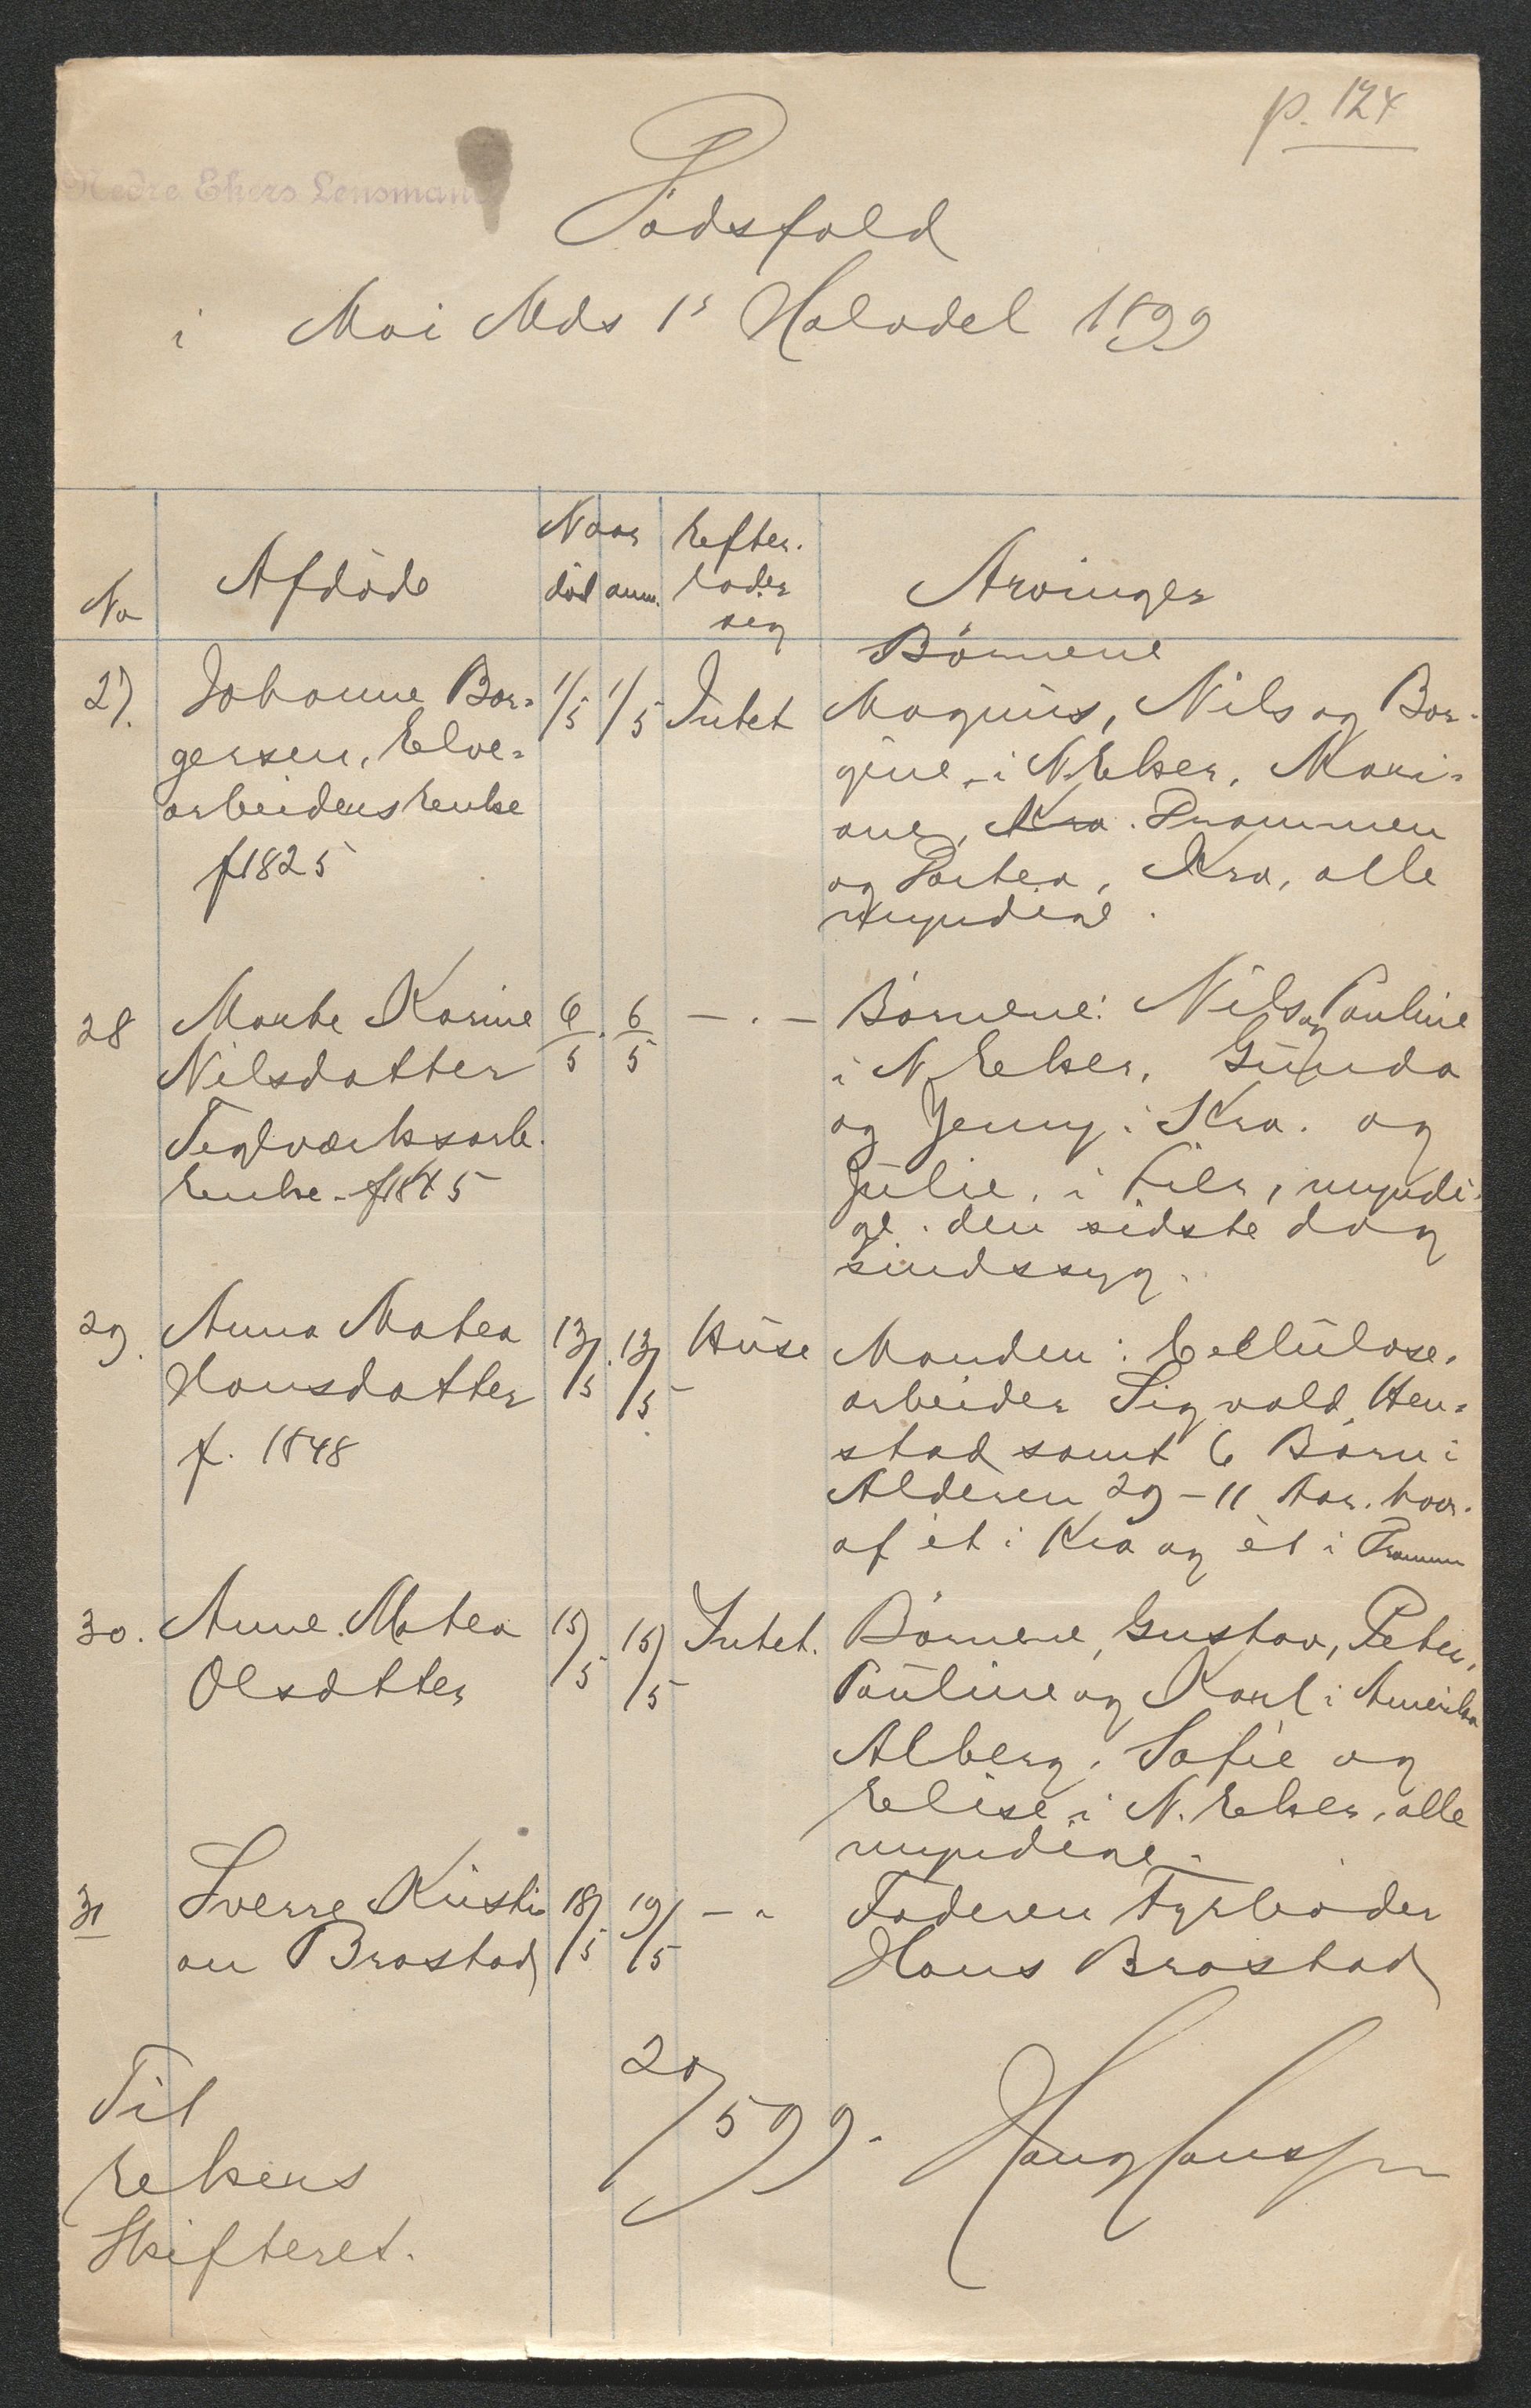 p. 124
Nedre Ekers Lensmand
Dødsfald
i Mai Mds 1s Halvdel 1899
No Afdøde Naar død anm. Efter-lader sig Arvinger
27. Johanne Bor-
gersen, Elve-
arbeiders Enke
f 1825
1/5 1/5 Intet
Børnene
Magnus, Nils og Bor-
gine i N. Eker, Mari-
ane, Kra. Drammen
og Dortea, Kra, alle
myndige.
28 Marte Karine
Nilsdatter
Teglværksarb.
Enke. f 1845
6/5 6/5 — . —
Børnene: Nils og Pauline
i N. Eker, Gunda
og Jenny i Kra. og
Julie, i Lier, myndi-
ge. den sidste dog
sindssyg.
29. Anna Matea
Hansdatter
f. 1848
13/5 13/5 Huse
Manden: Cellulose-
arbeider Sigvald Hen-
stad samt 6 Børn i
Alderen 29–11 Aar. hvor-
af ét i Kra og ét i Drammen
30. Anne Matea
Olsdtter
15/5 15/5 Intet.
Børnene, Gustav, Peter,
Pauline og Karl i Amerika
Alberg, Sofie og
Elise i N. Eker, alle
myndige.
31 Sverre Kristi
an Brastad
18/5 19/5 – "
Faderen Fyrbøder
Hans Brastad
Til
Ekers
Skifteret.
20/5 99.